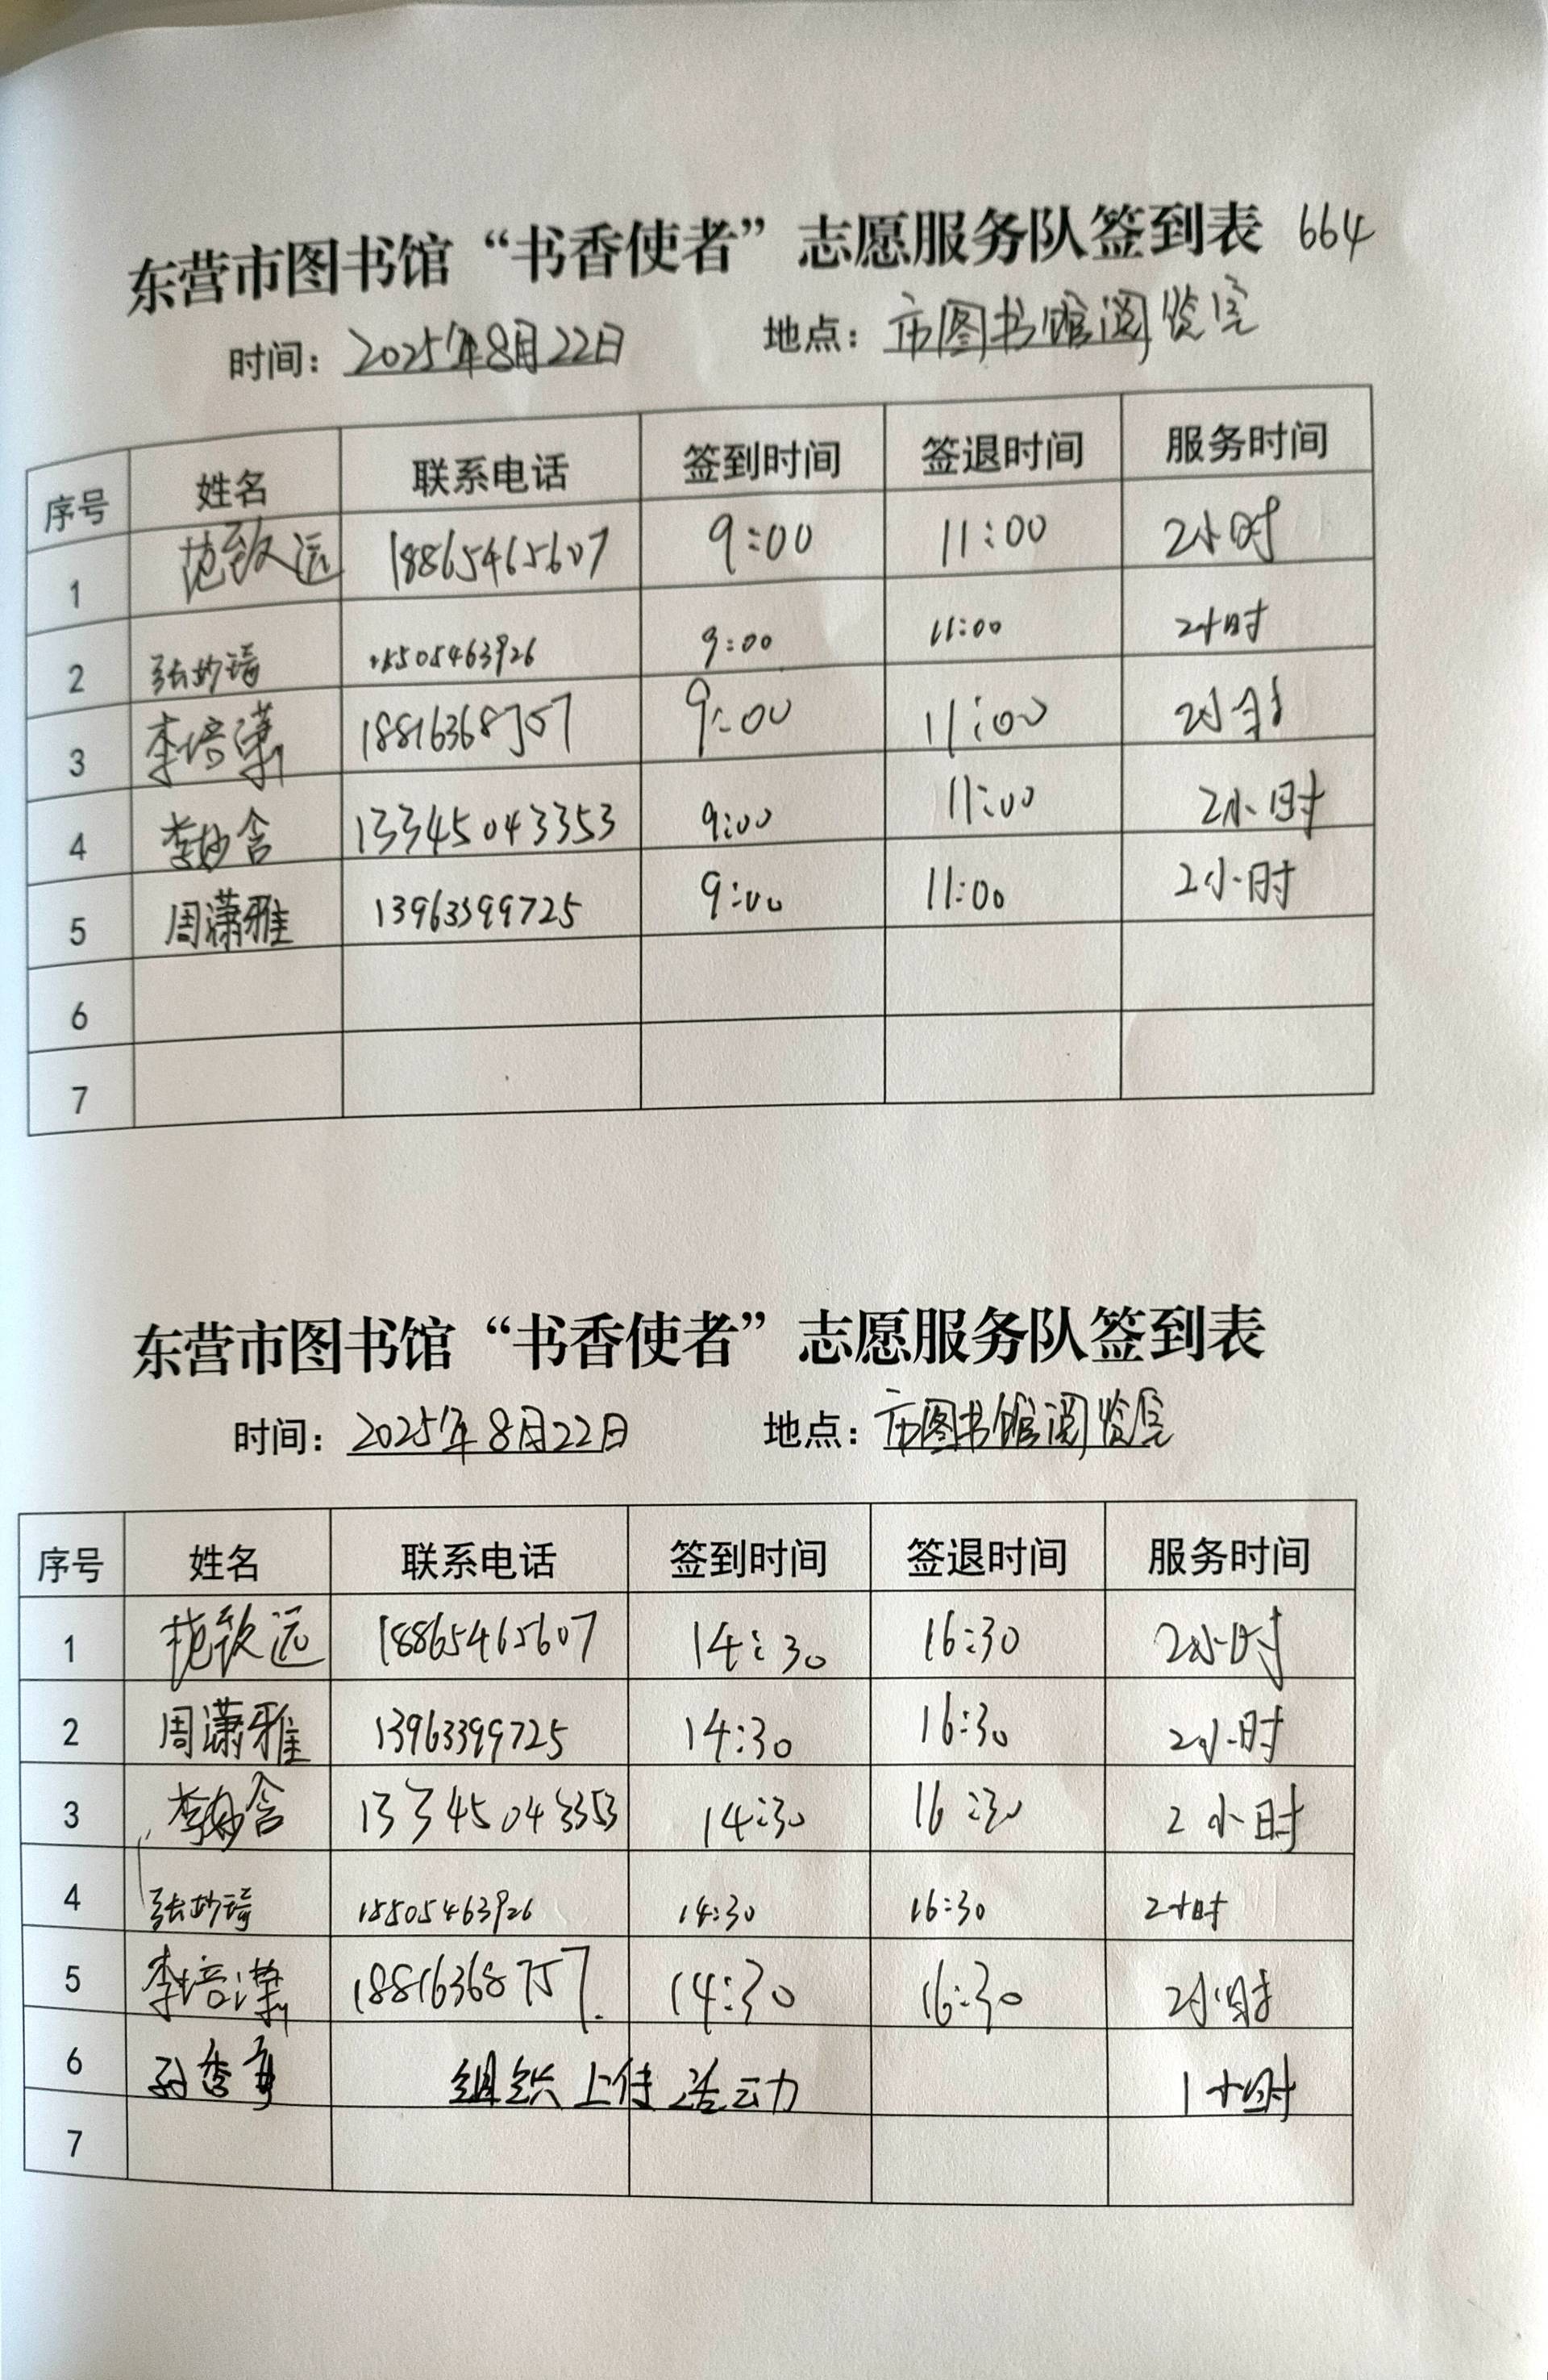 东营市图书馆“书香使者”志愿服务队签到表 664
时间：2025年8月22日 地点：市图书馆阅览室
序号 姓名 联系电话 签到时间 签退时间 服务时间
1 范致远 18865465607 9:00 11:00 2小时
2 张妙琦 15505463926 9:00 11:00 2小时
3 李培潇 18816368757 9:00 11:00 2小时
4 李妙含 13345043353 9:00 11:00 2小时
5 周潇雅 13963399725 9:00 11:00 2小时
6
7
东营市图书馆“书香使者”志愿服务队签到表
时间：2025年8月22日 地点：市图书馆阅览室
序号 姓名 联系电话 签到时间 签退时间 服务时间
1 范致远 18865465607 14:30 16:30 2小时
2 周潇雅 13963399725 14:30 16:30 2小时
3 李妙含 13345043353 14:30 16:30 2小时
4 张妙琦 15505463926 14:30 16:30 2小时
5 李培潇 18816368757. 14:30 16:30 2小时
6 组织上传活动 1小时
7